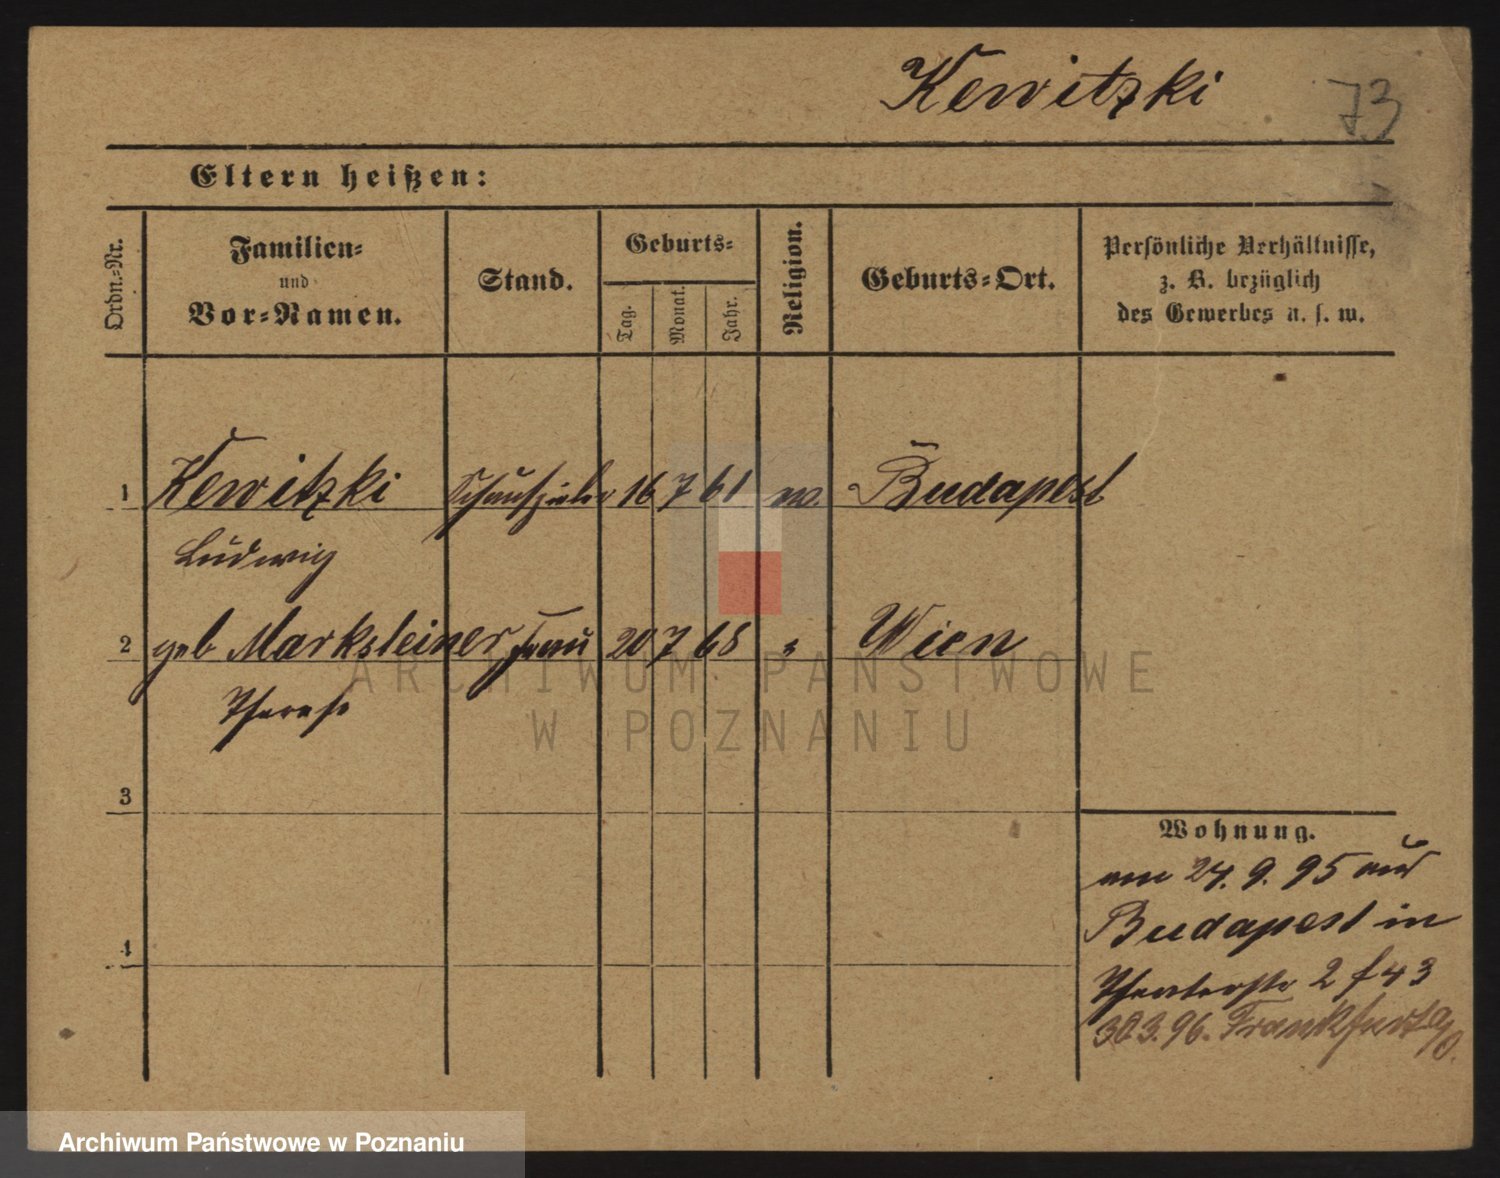 Kewitzki 73
Eltern heißen:
Ordn.-Nr.
Familien-
und
Vor-Namen.
Stand.
Geburts-
Tag.
Monat.
Jahr.
Religion.
Geburts-Ort.
Persönliche Verhältnisse,
z. B. bezüglich
des Gewerbes u. s. w.
1 Kewitzki Schauspieler 16 7 61 Budapest
Ludwig
2 geb Marksteiner Frau 20 7 68 Wien
Therese
3
4
Wohnung.
am 24. 9. 95 aus
Budapest in
Theaterstr 2 f 43
30.3.96. Frankfurt a/O.
ARCHIWUM PAŃSTWOWE
W POZNANIU
Archiwum Państwowe w Poznaniu